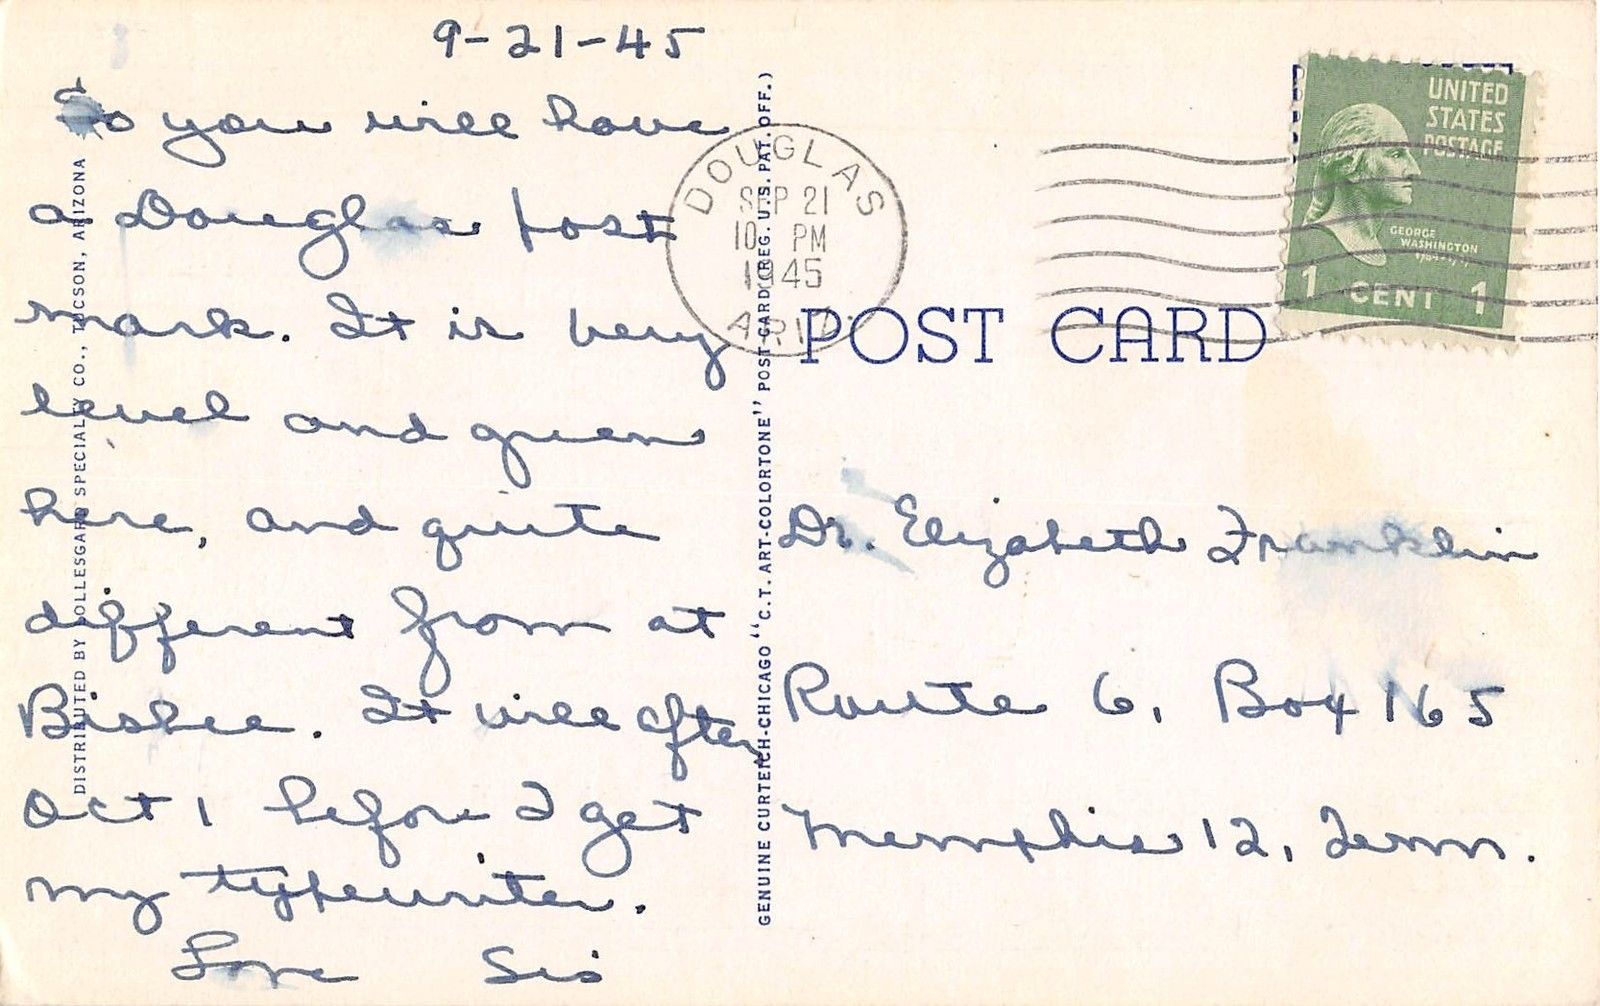 9-21-45
So you will have
a Douglas post
mark. It is very
level and green
here, and quite
different from at
Bisbee. It will after
Oct 1 before I get
my typewriter.
Love Sis
DISTRIBUTED BY LOLLESGARD SPECIALTY CO., TUCSON, ARIZONA
GENUINE CURTEICH-CHICAGO "C.T. ART-COLORTONE" POST CARD (REG. U.S. PAT. OFF.)
DOUGLAS
SEP 21
10 PM
1945
ARIZ.
UNITED
STATES
POSTAGE
GEORGE
WASHINGTON
1 CENT 1
POST CARD
Dr. Elizabeth Franklin
Route 6, Box 165
Memphis 12, Tenn.